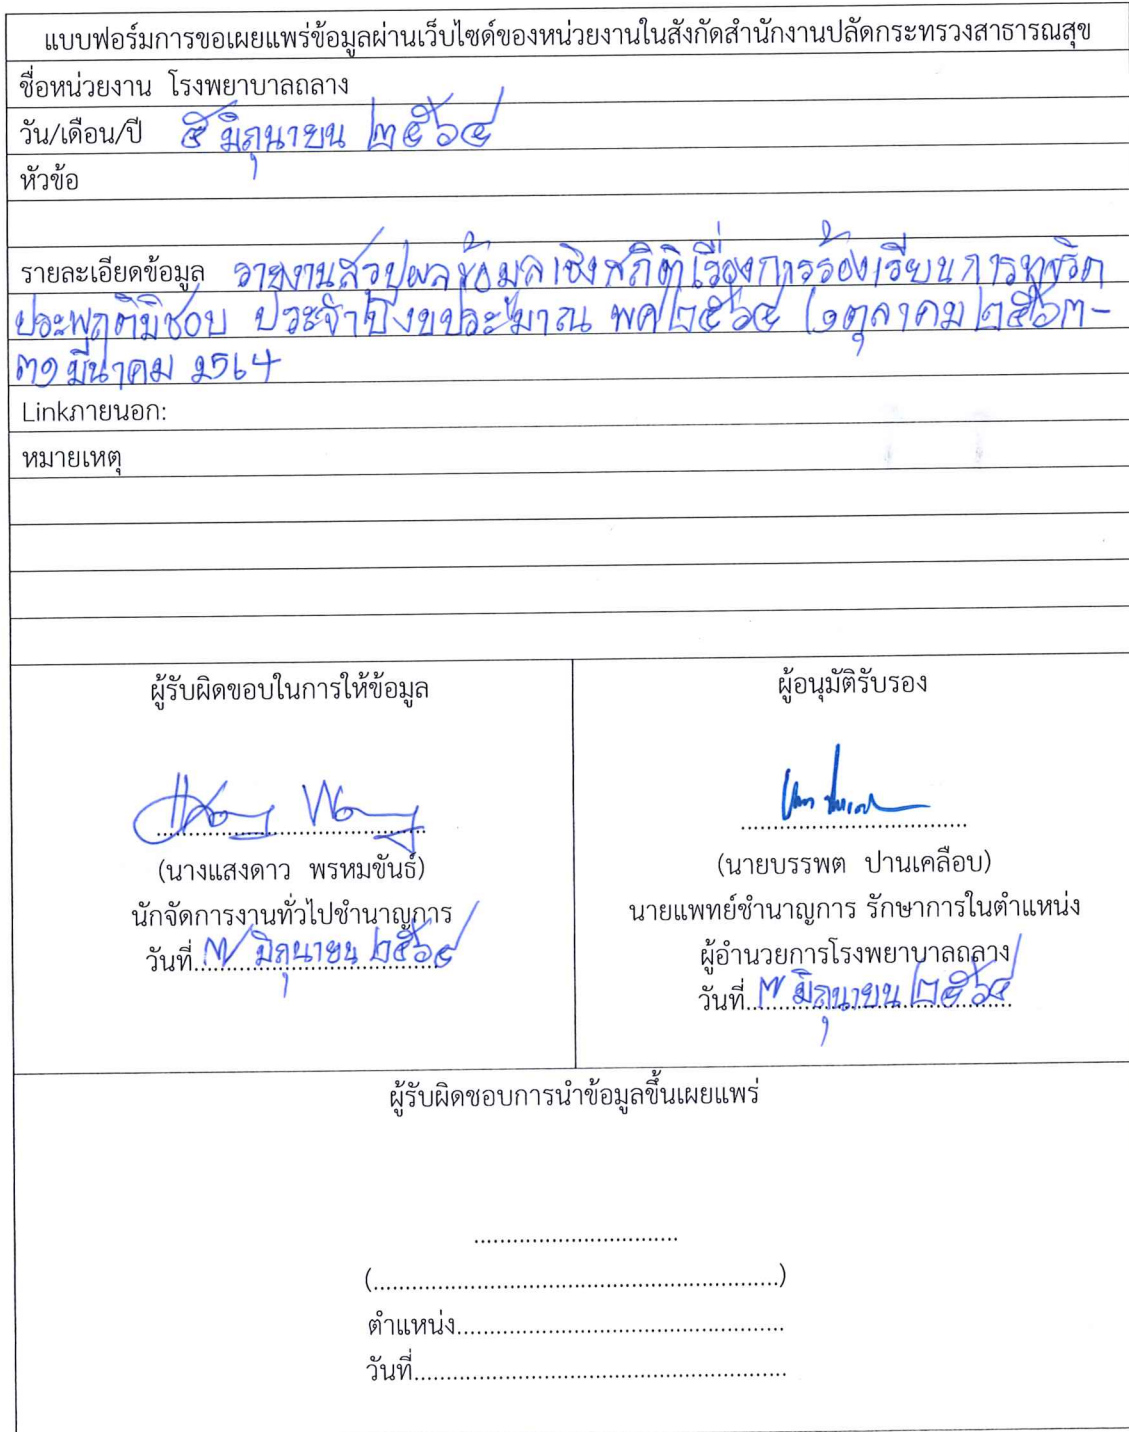 แบบฟอร์มการขอเผยแพร่ข้อมูลผ่านเว็บไซต์ของหน่วยงานในสังกัดสำนักงานปลัดกระทรวงสาธารณสุข
ชื่อหน่วยงาน โรงพยาบาลถลาง
วัน/เดือน/ปี ๕ มิถุนายน ๒๕๖๔
หัวข้อ
รายละเอียดข้อมูล รายงานสรุปผลข้อมูลเชิงสถิติเรื่องการร้องเรียนการทุจริต
ประพฤติมิชอบ ประจำปีงบประมาณ พศ ๒๕๖๔ (๑ ตุลาคม ๒๕๖๓-
๓๑ มีนาคม ๒564
Linkภายนอก:
หมายเหตุ
ผู้รับผิดขอบในการให้ข้อมูล
(นางแสงดาว พรหมขันธ์)
นักจัดการงานทั่วไปชำนาญการ
วันที่ ๗ มิถุนายน ๒๕๖๔
ผู้อนุมัติรับรอง
(นายบรรพต ปานเคลือบ)
นายแพทย์ชำนาญการ รักษาการในตำแหน่ง
ผู้อำนวยการโรงพยาบาลถลาง
วันที่ ๗ มิถุนายน ๒๕๖๔
ผู้รับผิดชอบการนำข้อมูลขึ้นเผยแพร่
................................
(...............................................................)
ตำแหน่ง...................................................
วันที่..........................................................